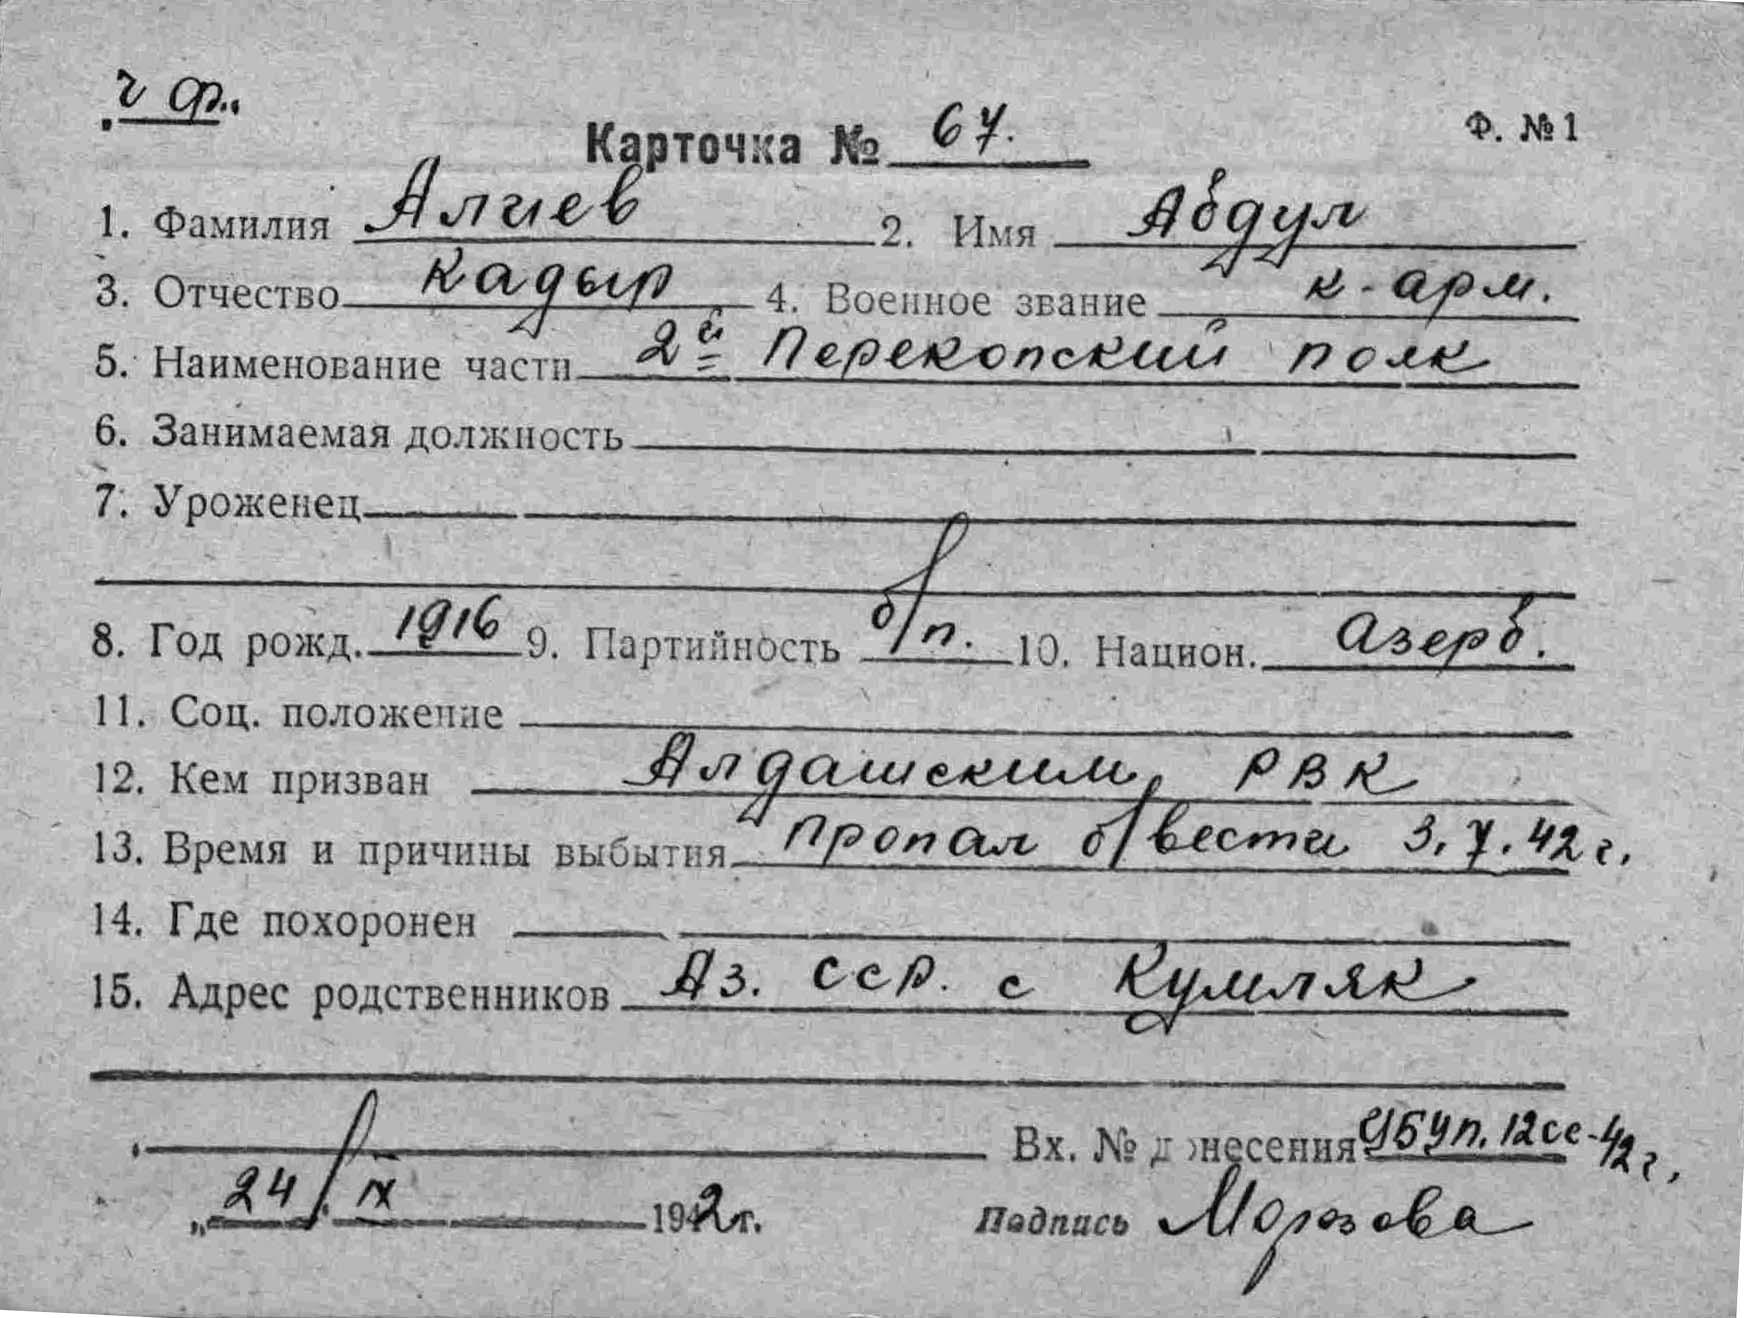 ч ф.
Карточка № 67.
Ф. №1
1. Фамилия Алиев 2. Имя Абдул
3. Отчество Кадыр 4. Военное звание к-арм.
5. Наименование части 2й Перекопский полк
6. Занимаемая должность
7. Уроженец
8. Год рожд. 1916 9. Партийность б/п. 10. Национ. Азерб.
11. Соц. положение
12. Кем призван Алдашским РВК
13. Время и причины выбытия Пропал б/вести 3.V.42 г.
14. Где похоронен
15. Адрес родственников Аз. ССР. с Кумляк
Вх. № донесения 12се-42г.
„24/IX 1942г.
Подпись Морозова